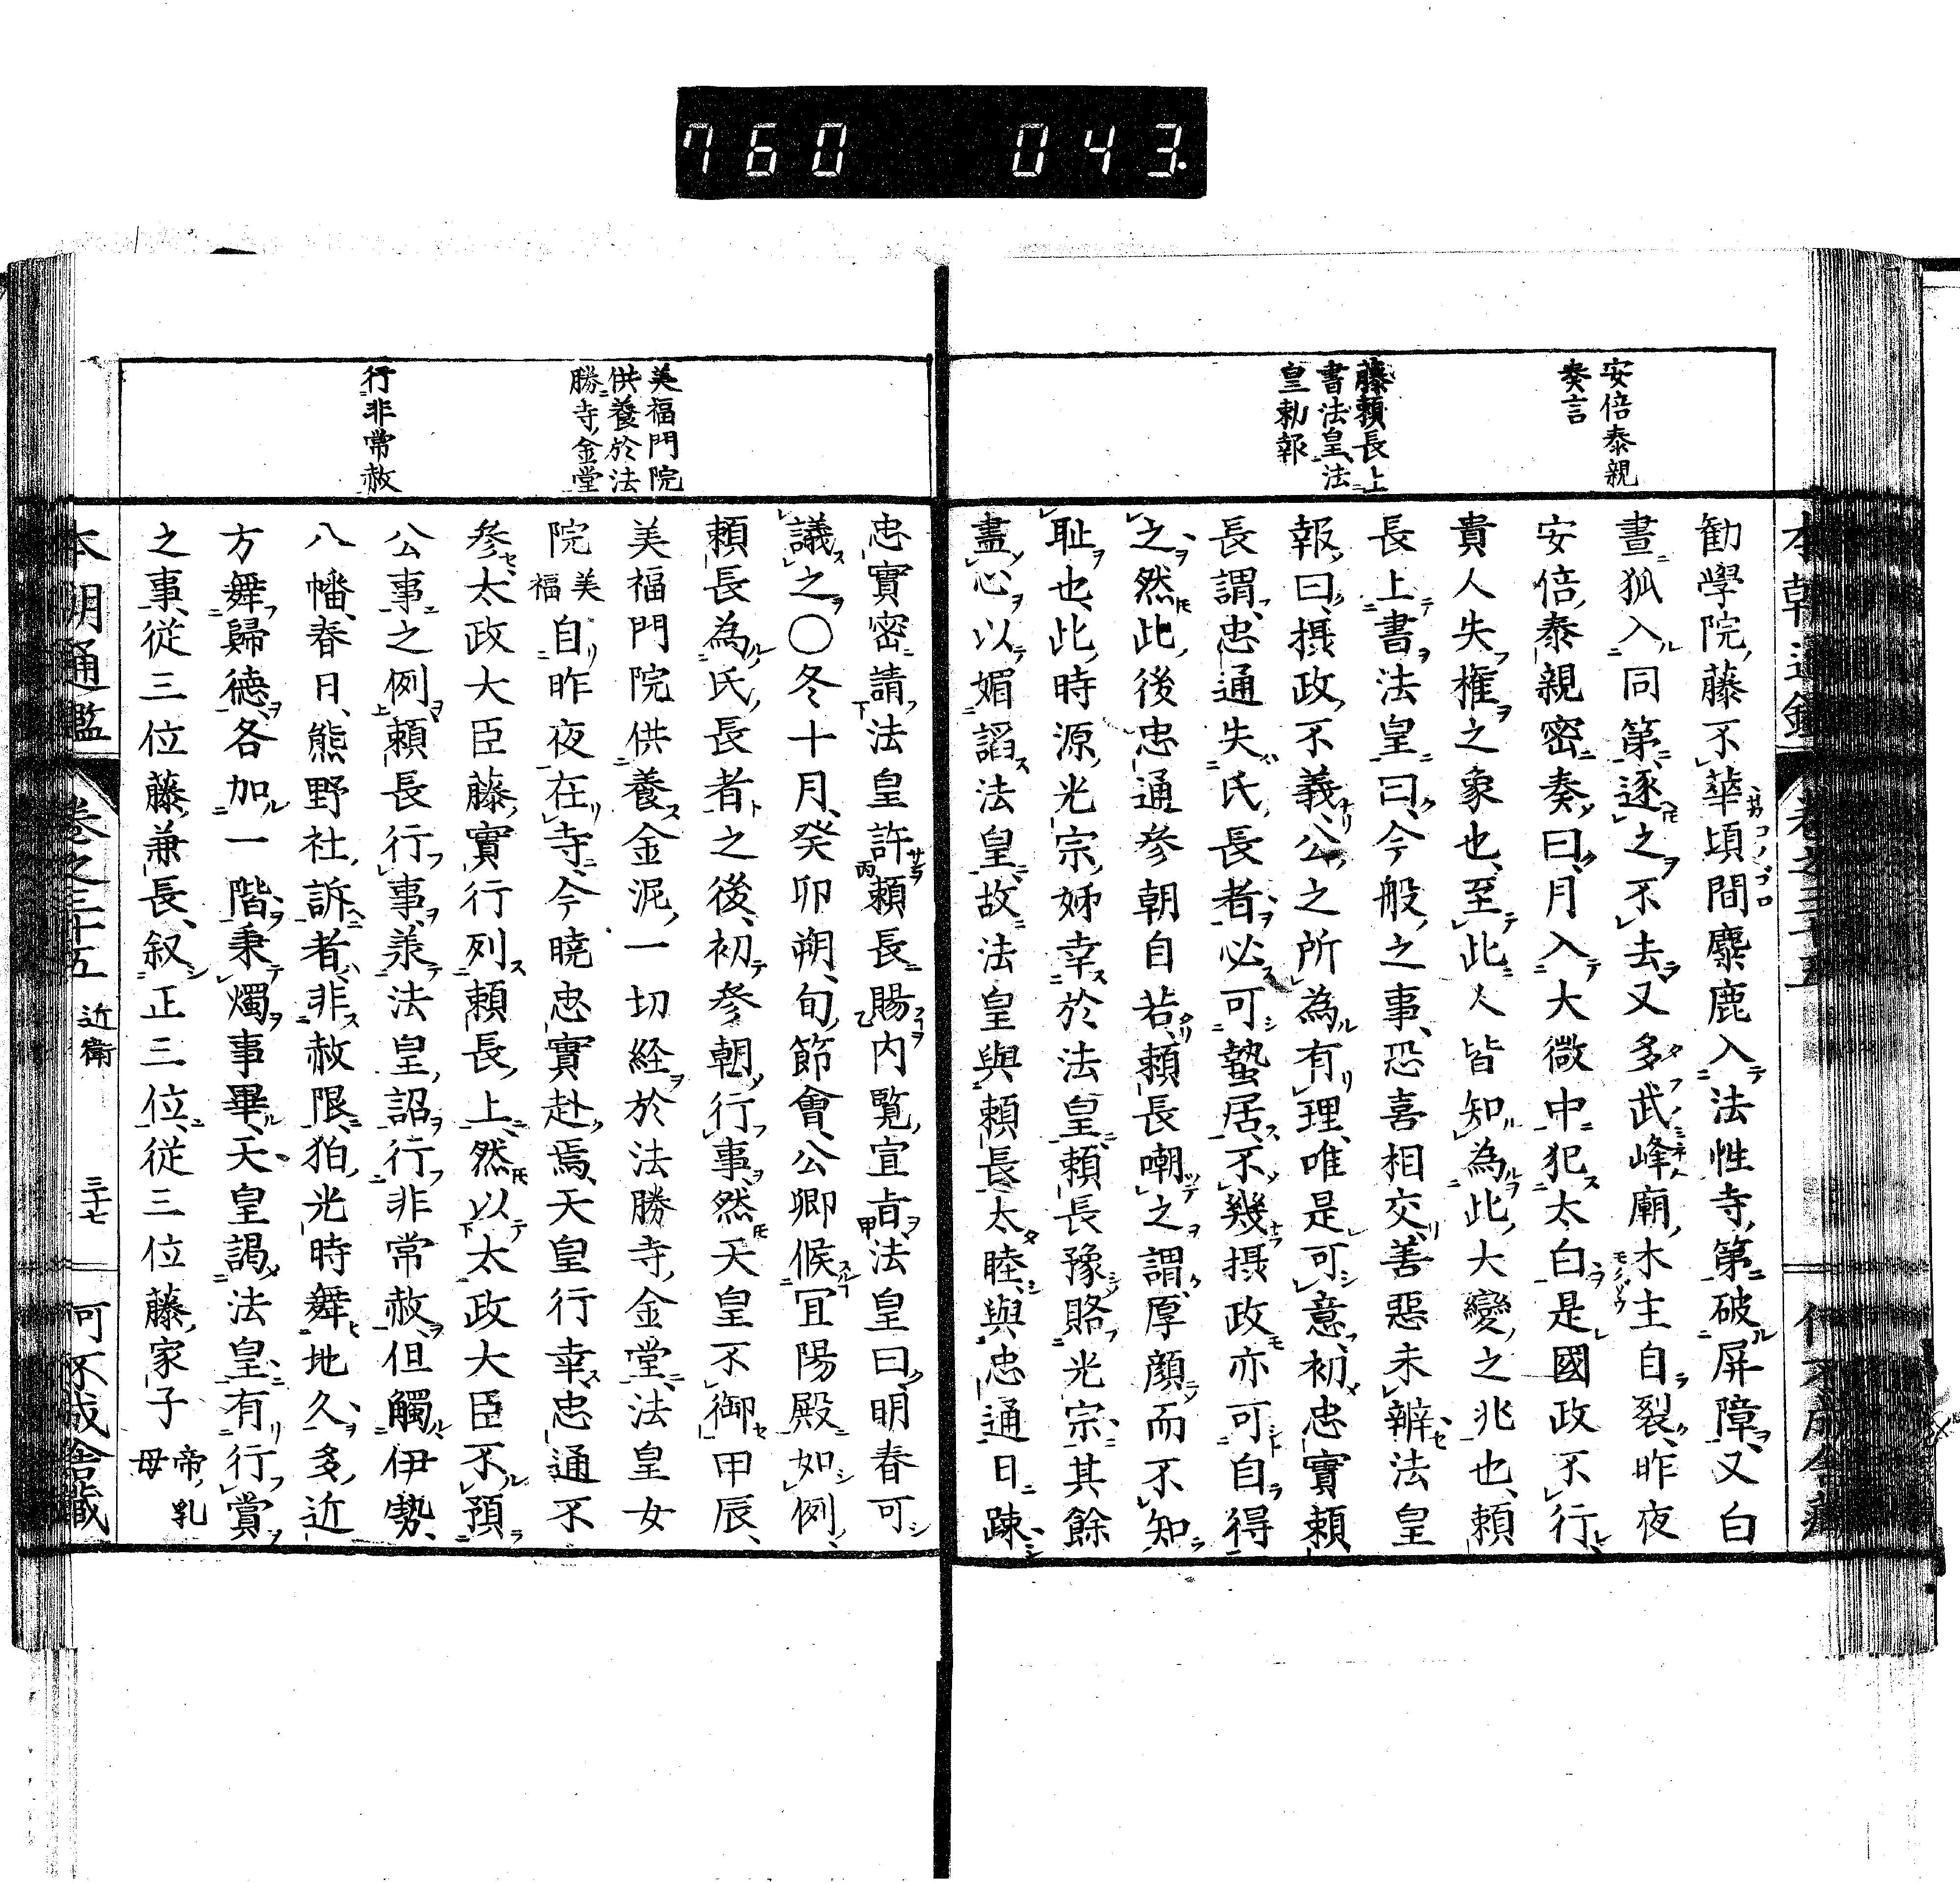 760 043.
安倍泰親
奏言
藤頼長上
書法皇法
皇勅報
勧學院藤不華頃間麋鹿入法性寺第破屏障又白
晝狐入同第逐之不去又多武峰廟木主自裂昨夜
安倍泰親密奏曰月入大微中犯太白是國政不行
貴人失權之象也至此人皆知為此大變之兆也頼
長上書法皇曰今般之事恐喜相交善惡未辨法皇
報曰摂政不義公之所為有理唯是可意初忠實頼
長謂忠通失氏長者必可蟄居不幾摂政亦可自得
之然此後忠通参朝自若頼長嘲之謂厚顔而不知
耻也此時源光宗姊幸於法皇頼長豫賂光宗其餘
盡心以媚謟法皇故法皇與頼長太睦與忠通日踈
美福門院
供養於法
勝寺金堂
行非常赦
忠實密請法皇許頼長賜内覧宣旨法皇曰明春可
議之〇冬十月癸卯朔旬節會公卿候冝陽殿如例
頼長為氏長者之後初参朝行事然天皇不御甲辰
美福門院供養金泥一切経於法勝寺金堂法皇女
院美福自昨夜在寺今曉忠實赴焉天皇行幸忠通不
参太政大臣藤實行列頼長上然以太政大臣不預
公事之例頼長行事羕法皇詔行非常赦但觸伊勢
八幡春日熊野社訴者非赦限狛光時舞地久多近
方舞歸德各加一階秉燭事畢天皇謁法皇有行賞
之事從三位藤兼長叙正三位從三位藤家子帝乳母
本朝通鑑 卷之三十五 近衛 三十七 可不成舎蔵